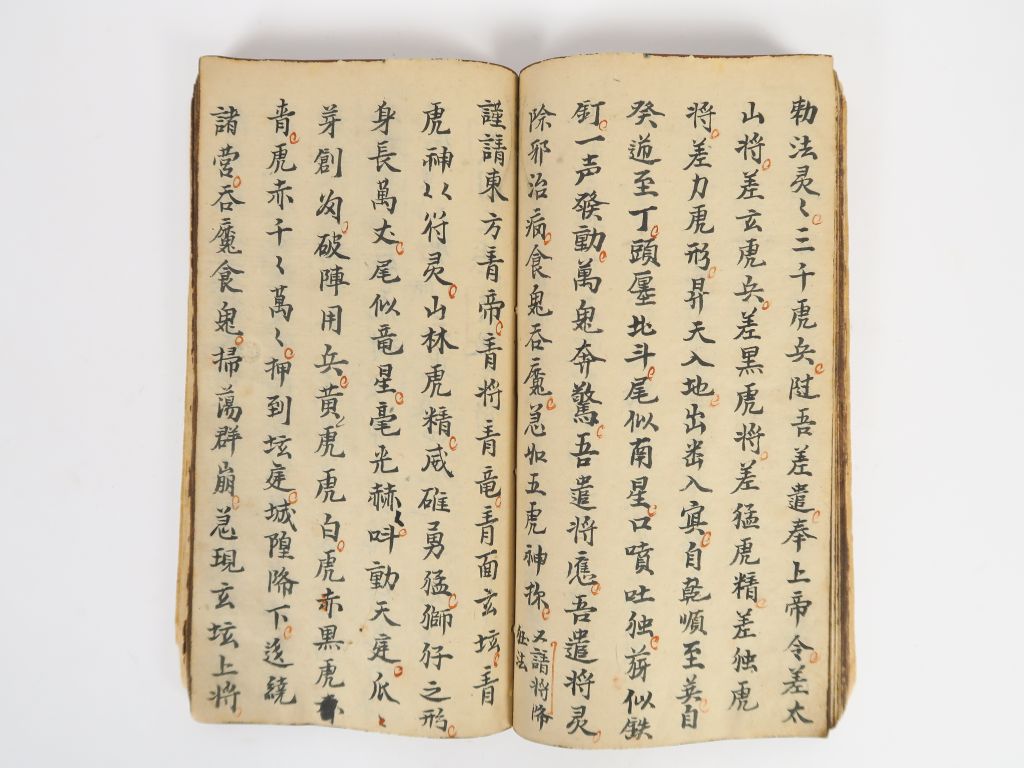 勅法灵〻三千虎兵隨吾差遣奉上帝令差太
山将差玄虎兵差黒虎将差猛虎精差独虎
将差力虎形昇天入地出岩入寅自乾順至英自
癸遁至丁頭壓北斗尾似南星口噴吐独蘚似鉄
釘一声發動萬鬼奔驚吾遣将應吾遣将灵
除邪治病食鬼吞魔急如五虎神捸
又請将降
征法
謹請東方青帝青将青竜青面玄坛青
虎神〻符灵山林虎精威雄勇猛獅仔之形
身長萬丈尾似竜星毫光赫〻呌動天庭爪
芽創匈破陣用兵黄虎虎白虎赤黒虎
青虎赤千〻萬〻押到坛庭城隍降下逶繞
諸营吞魔食鬼掃蕩群崩急現玄坛上将